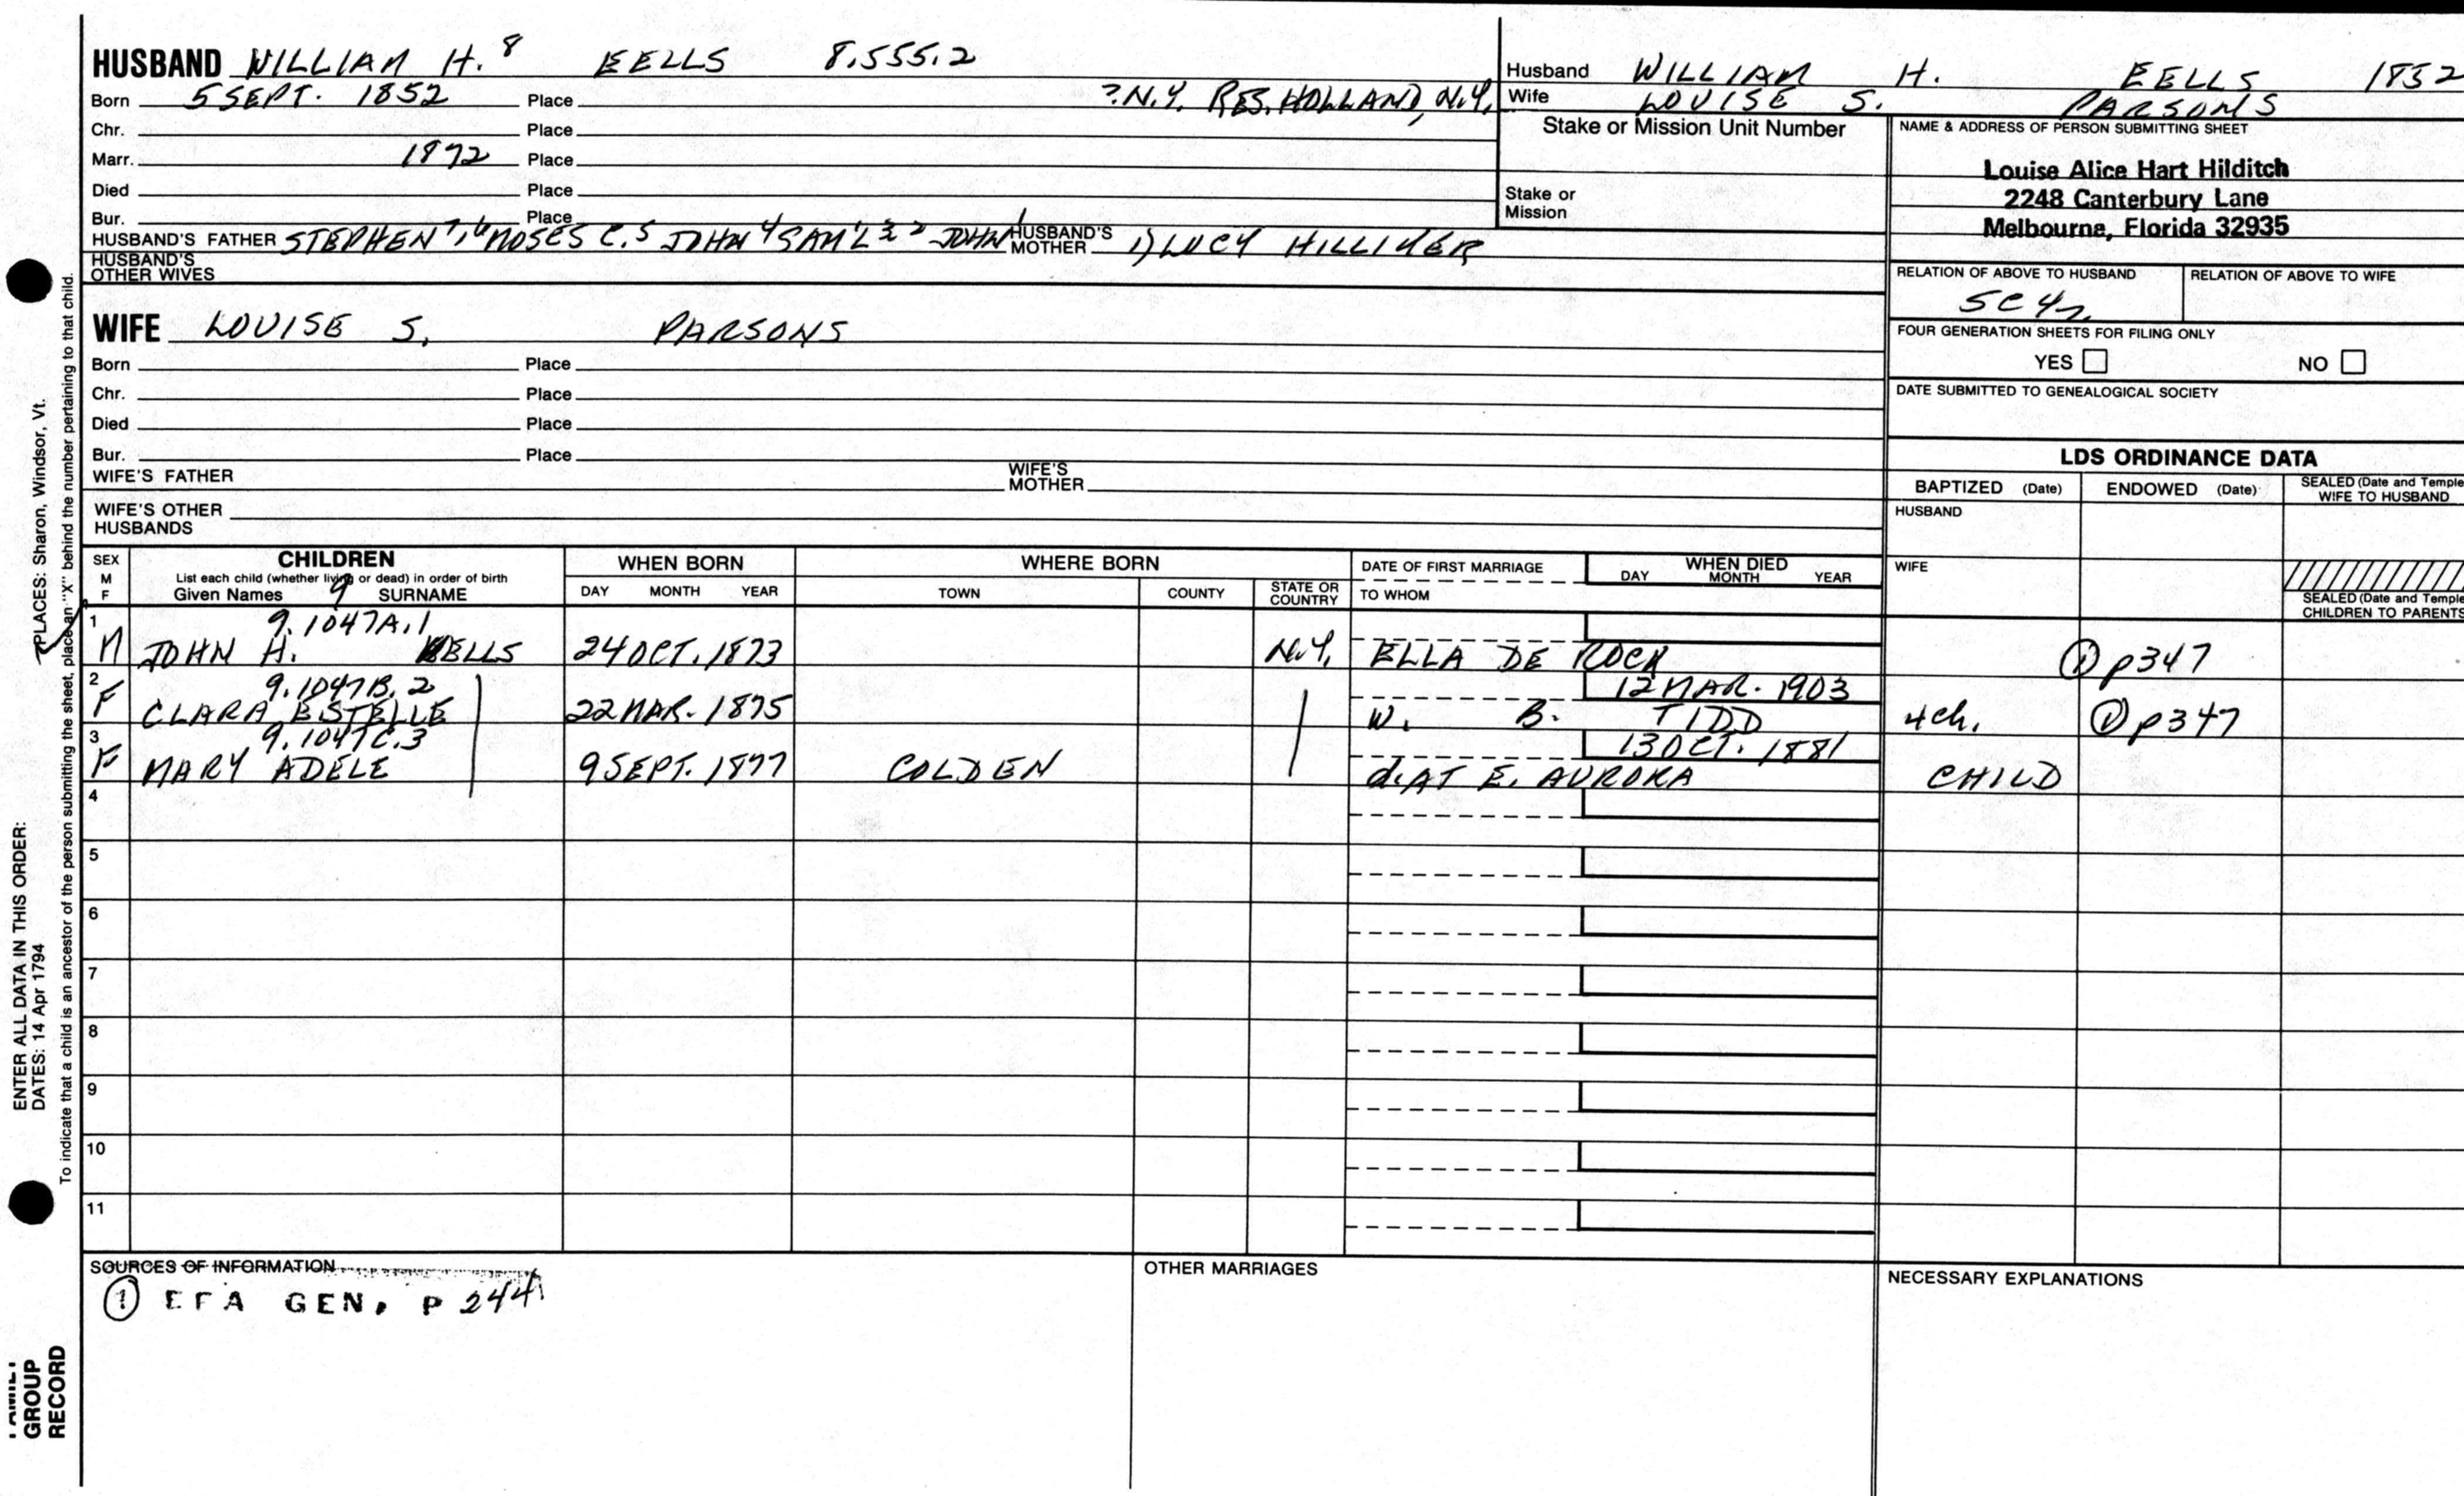 HUSBAND WILLIAM H. 8 EELLS 8.555.2
Born 5 SEPT. 1852 Place ?N.Y. RES. HOLLAND, N.Y.
Chr. Place
Marr. 1872 Place
Died Place
Bur. Place
HUSBAND'S FATHER STEPHEN 7, 6 MOSES C. 5 JOHN 4 SAM'L 3 2 JOHN 1 HUSBAND'S MOTHER 1) LUCY HILLIKER
HUSBAND'S OTHER WIVES
Husband WILLIAM H. EELLS 1852
Wife LOUISE S. PARSONS
Stake or Mission Unit Number
Stake or
Mission
NAME & ADDRESS OF PERSON SUBMITTING SHEET
Louise Alice Hart Hilditch
2248 Canterbury Lane
Melbourne, Florida 32935
RELATION OF ABOVE TO HUSBAND RELATION OF ABOVE TO WIFE
5C4r
FOUR GENERATION SHEETS FOR FILING ONLY
YES NO
DATE SUBMITTED TO GENEALOGICAL SOCIETY
WIFE LOUISE S. PARSONS
Born Place
Chr. Place
Died Place
Bur. Place
WIFE'S FATHER WIFE'S MOTHER
WIFE'S OTHER
HUSBANDS
LDS ORDINANCE DATA
BAPTIZED (Date) ENDOWED (Date) SEALED (Date and Temple
WIFE TO HUSBAND
HUSBAND
WIFE
SEALED (Date and Temple
CHILDREN TO PARENTS
SEX
M
F
CHILDREN
List each child (whether living or dead) in order of birth
Given Names 9 SURNAME
WHEN BORN
DAY MONTH YEAR
WHERE BORN
TOWN COUNTY STATE OR COUNTRY
DATE OF FIRST MARRIAGE
TO WHOM
WHEN DIED
DAY MONTH YEAR
1 9.1047A.1
M JOHN H. EELLS 24 OCT. 1873 N.Y. ELLA DE ROCK ① p347
2 9.1047B.2 12 MAR. 1903
F CLARA ESTELLE 22 MAR. 1875 W. B. TIDD 4ch. ① p347
3 9.1047C.3 13 OCT. 1881
F MARY ADELE 9 SEPT. 1877 COLDEN d. AT E. AURORA CHILD
4
5
6
7
8
9
10
11
SOURCES OF INFORMATION
① EFA GEN. P 244
OTHER MARRIAGES
NECESSARY EXPLANATIONS
ENTER ALL DATA IN THIS ORDER:
PLACES: Sharon, Windsor, Vt.
DATES: 14 Apr 1794
To indicate that a child is an ancestor of the person submitting the sheet, place an "X" behind the number pertaining to that child.
FAMILY
GROUP
RECORD